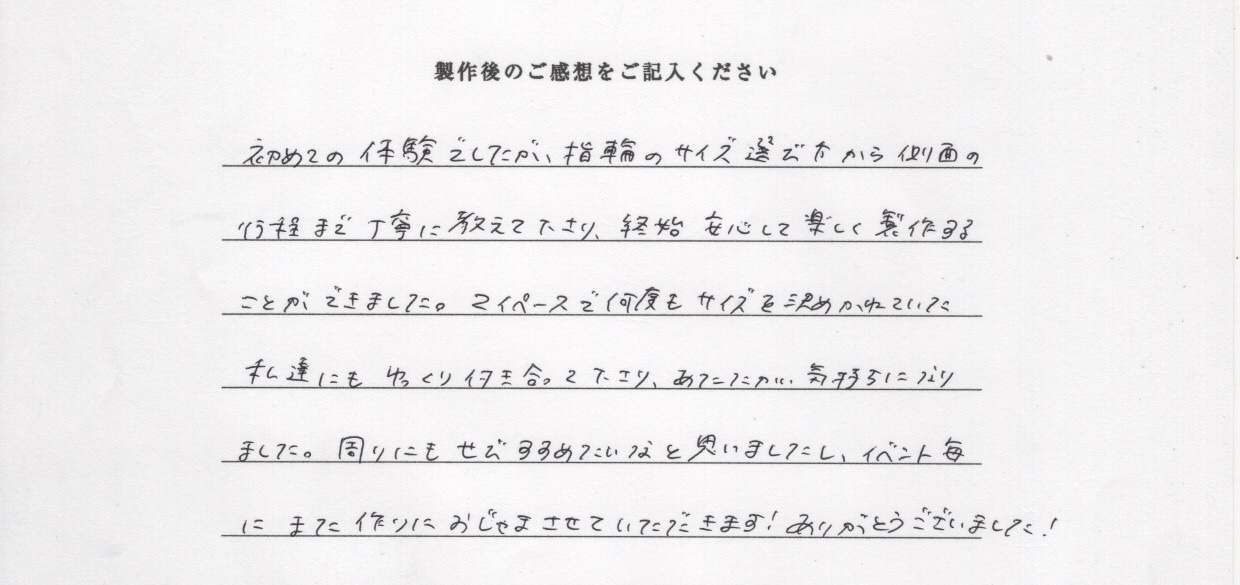 製作後のご感想をご記入ください
初めての体験でしたが、指輪のサイズ選び方から側面の
行程まで丁寧に教えて下さり、終始安心して楽しく製作する
ことができました。マイペースで何度もサイズを決めかねていた
私達にもゆっくり付き合って下さり、あたたかい気持ちになり
ました。周りにもぜひすすめたいなと思いましたし、イベント毎
にまた作りにおじゃまさせていただきます!ありがとうございました!